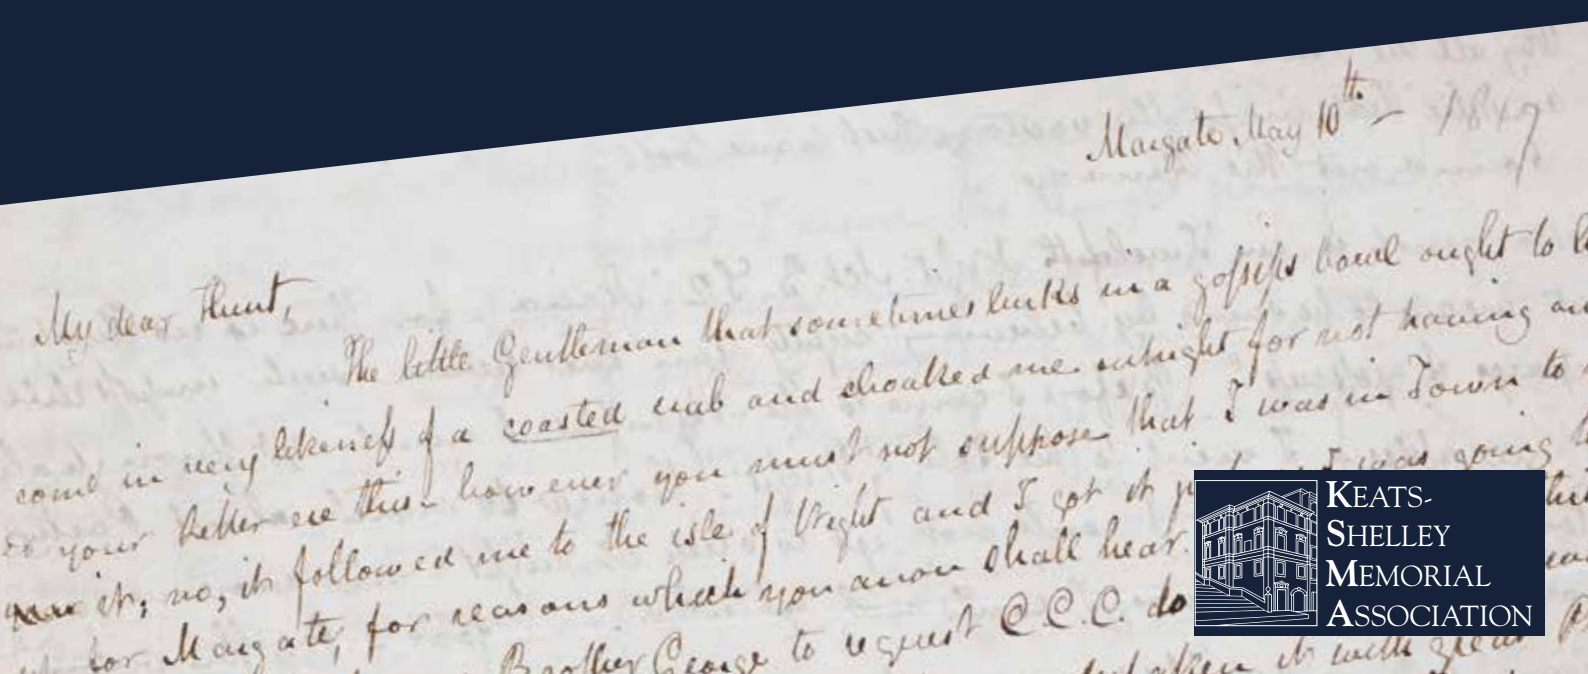 Margate May 10th - 1817
My dear Hunt,
The little Gentleman that sometimes lurks in a gossips bowl ought to
come in very likeness of a coasted crab and choaked me outright for not having
your Letter ere this - however you must not suppose that I was in Town to
it; no, it followed me to the isle of Wight and I got it I was going
for Margate, for reasons which you anon shall hear.
Brother George to request C.C.C. do
taken it with great
KEATS-
SHELLEY
MEMORIAL
ASSOCIATION